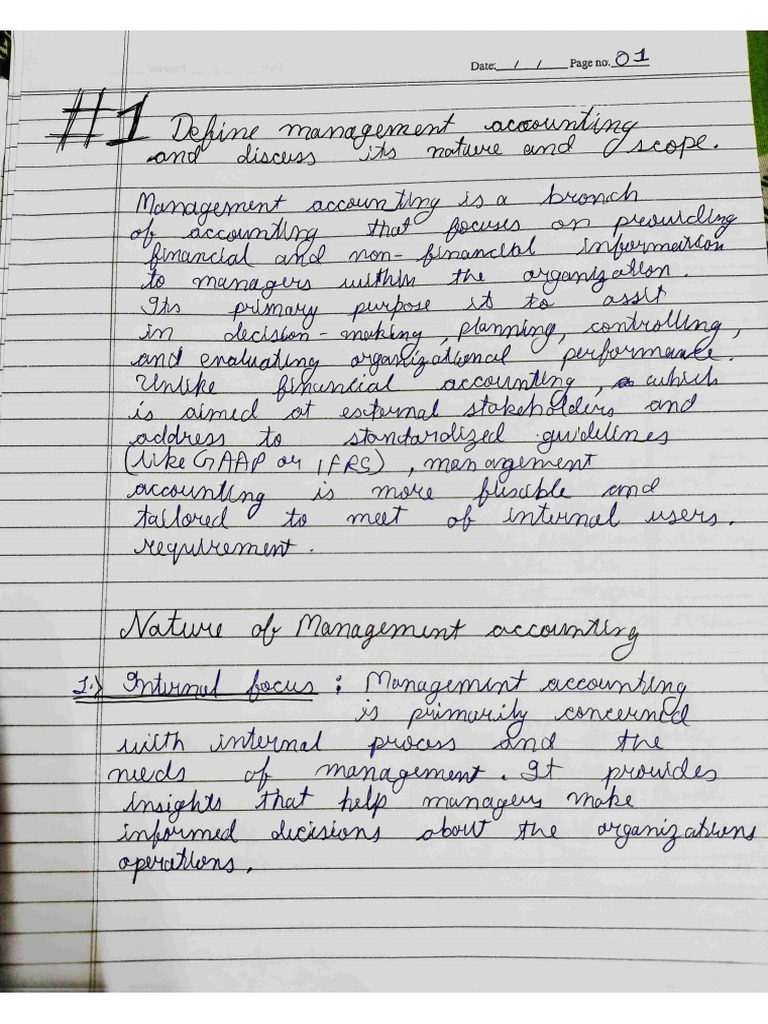 Date: / / Page no. 01
#1 Define management accounting
and discuss its nature and scope.
Management accounting is a bronch
of accounting that focuses on preouiding
financial and non-financial information
to managers within the organization.
Its primary purpose it to assit
in decision-making, planning, controlling,
and evaluating organizational performance.
Unlike financial accounting, which
is aimed at external stakeholders and
address to standardized guidelines
(like GAAP or IFRS), management
accounting is more flexible and
tailored to meet of internal users.
requirement.
Nature of Management accounting
1.) Internal focus : Management accounting
is primarily concerned
with internal process and the
needs of management. It provides
insights that help managers make
informed decisions about the organizations
operations.